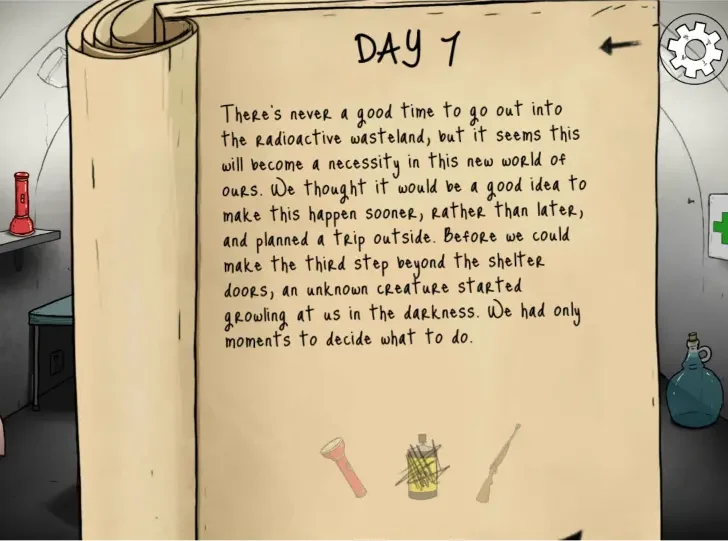 DAY 7
There's never a good time to go out into
the radioactive wasteland, but it seems this
will become a necessity in this new world of
ours. We thought it would be a good idea to
make this happen sooner, rather than later,
and planned a trip outside. Before we could
make the third step beyond the shelter
doors, an unknown creature started
growling at us in the darkness. We had only
moments to decide what to do.